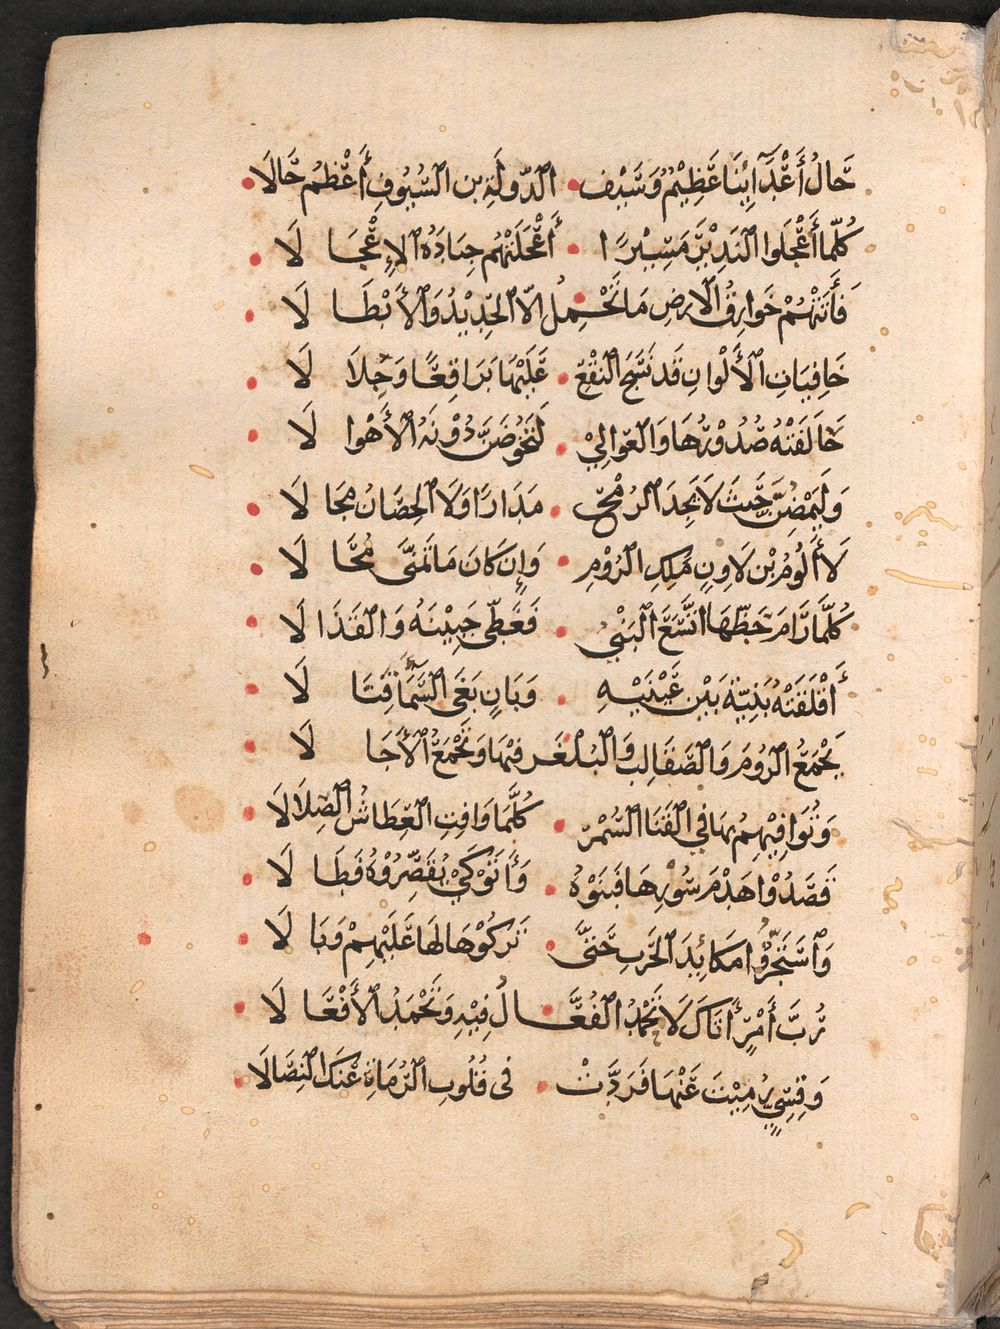 حَالُ أَعْدَآئِنَا عَظِيْمٌ وَسَيْفُ • الدَّولَةِ بن السُّيُوفِ أَعْظَمُ حَالَا •
كُلَّمَا أَعْجَلُوا النَّذِيْرَ مَسِيْرًا • أَعْجَلَتْهُم جِيَادُهُ الإِعْجَا لَا •
فَأَتَتْهُمْ خَوارِقُ الارضِ مَا تَحْـ•ـمِلُ الّا الحَدِيْدَ وَالأَبْطَا لَا •
خَافِيَاتِ الأَلْوانِ قَد نَسَجَ النَقْعُ • عَلَيْهَا بَرَاقِعًا وَجِلَا لَا •
حَالَفَتْهُ صُدُوْرُهَا وَالعَوالِيْ • لَتَخُوْضَنَّ دُوْنَهُ الأَهْوا لَا •
وَلَيَمْضِنَّ حَيْثُ لَا يَجِدَ الرُمْحُ • مَدَارًا وَلَا الحِصَانُ مَجَا لَا •
لَا أَلُومُ بْن لَاوِنٍ مَلِكِ الرُوْمِ • وَإِن كَانَ مَا تَمَنَّى مُحَا لَا •
كُلَّمَا رَامَ حَطَّهَا اتَّسَعَ البَنْيُ • فَغَطَّى جَبِيْنَهُ وَالقَذَا لَا •
أَقْلَقَتْهُ بَنِيَّةٌ بَيْنَ عَيْنَيْهِ • وَبَانٍ بَغَى السَّمَآ فَنَا لَا •
يَجْمَعُ الرُومَ وَالصَقَالِبَ وَالبُلْغَـ•ـر فِيْهَا وَتَجْمَعُ الأَجَا لَا •
وَتُوَافِيْهِمُ بِهَا فِي القَنَا السُمْرِ • كُلَّمَا وَافِتِ العِطَاشُ الصِلَالَا •
قَصَدُوْا هَدْمَ سُوْرِهَا فَبَنَوْهُ • وَأَتَوْ كَيْ يُقَصِّرُوْهُ فَطَا لَا •
وَاسْتَجَرُّوْا مَكَائِدَ الحَربِ حَتَّى • تَرَكُوْهَا لَهَا عَلَيْهِمْ وَبَا لَا •
رُبَّ أَمْرٍ أَتَاكَ لَا تَحْمَدُ الفُعَّـ•ـالُ فِيْهِ وَتَحْمَدُ الأَفْعَا لَا •
وَقِسِيٍّ رُمِيْتَ عَنْهَا فَرَدَّتْ • فى قُلُوبِ الرُمَاةِ عَنكَ النِصَالَا •